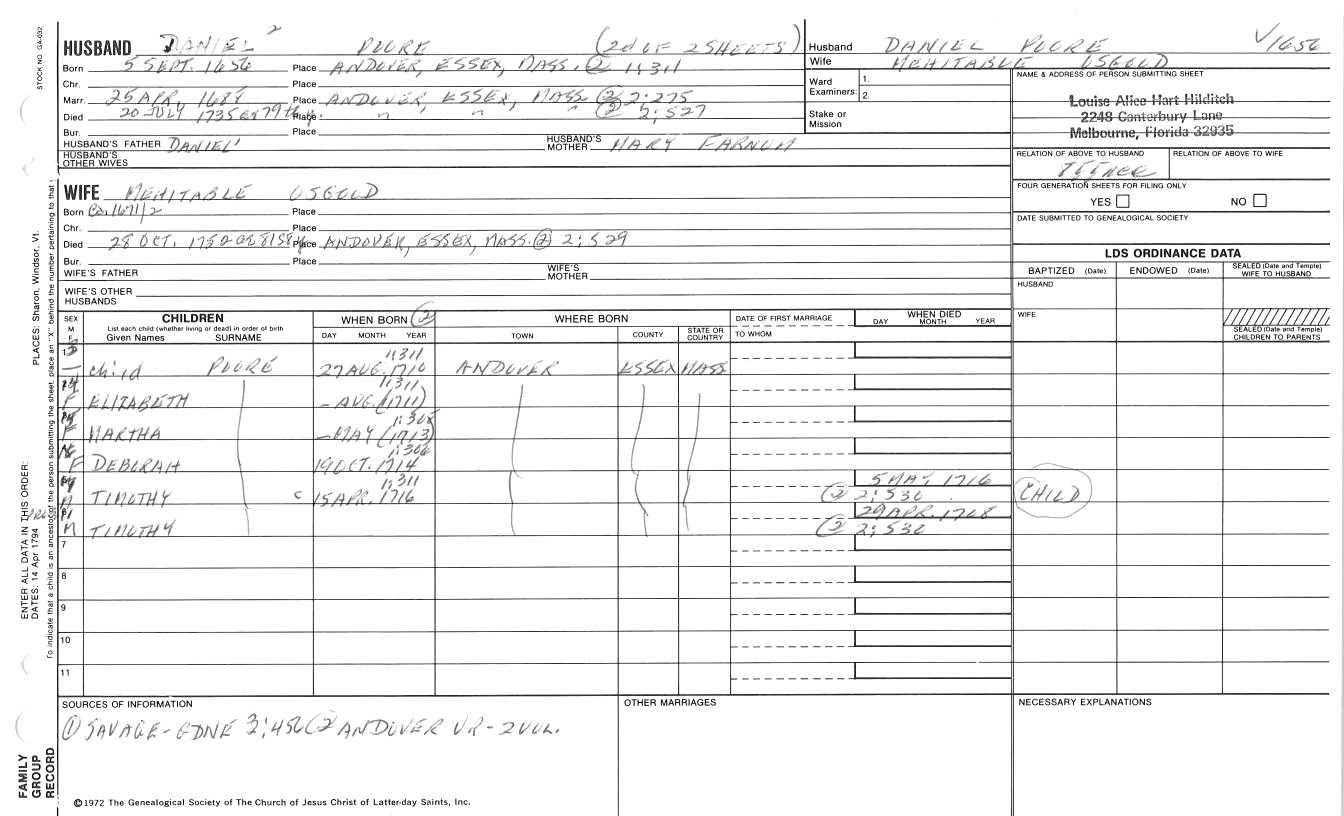 HUSBAND DANIEL 2 POORE (2d OF 2 SHEETS)
Born 5 SEPT. 1656 Place ANDOVER, ESSEX, MASS. (2) 1:311
Chr. Place
Marr. 25 APR. 1688 Place ANDOVER, ESSEX, MASS (2) 2:275
Died 20 JULY 1735 Place " " " (2) 2:527
Bur. Place
HUSBAND'S FATHER DANIEL' HUSBAND'S MOTHER MARY FARNUM
HUSBAND'S OTHER WIVES
WIFE MEHITABLE OSGOOD
Born Ca. 1671/2 Place
Chr. Place
Died 28 OCT. 1752 Place ANDOVER, ESSEX, MASS. (2) 2:529
Bur. Place
WIFE'S FATHER WIFE'S MOTHER
WIFE'S OTHER HUSBANDS
Husband DANIEL POORE V 1656
Wife MEHITABLE OSGOOD
Ward 1.
Examiners: 2.
Stake or Mission
NAME & ADDRESS OF PERSON SUBMITTING SHEET
Louise Alice Hart Hilditch
2248 Canterbury Lane
Melbourne, Florida 32935
RELATION OF ABOVE TO HUSBAND RELATION OF ABOVE TO WIFE
FOUR GENERATION SHEETS FOR FILING ONLY
YES NO
DATE SUBMITTED TO GENEALOGICAL SOCIETY
LDS ORDINANCE DATA
BAPTIZED (Date) ENDOWED (Date) SEALED (Date and Temple) WIFE TO HUSBAND
HUSBAND
WIFE
SEALED (Date and Temple) CHILDREN TO PARENTS
SEX M F CHILDREN
List each child (whether living or dead) in order of birth
Given Names SURNAME
WHEN BORN (2)
DAY MONTH YEAR
WHERE BORN
TOWN COUNTY STATE OR COUNTRY
DATE OF FIRST MARRIAGE
TO WHOM
WHEN DIED
DAY MONTH YEAR
1:311
— child POORE 27 AUG. 1710 ANDOVER ESSEX MASS
1:311
F ELIZABETH – AUG. (1711)
1:308
F MARTHA – MAY (1713)
1:306
F DEBORAH 19 OCT. 1714
1:311 5 MAY 1716
M TIMOTHY C 15 APR. 1716 (2) 2:530 CHILD
29 APR. 1708
M TIMOTHY (2) 2:530
7
8
9
10
11
SOURCES OF INFORMATION
(1) SAVAGE-GDNE 3:456 (2) ANDOVER VR-2VOL.
OTHER MARRIAGES
NECESSARY EXPLANATIONS
©1972 The Genealogical Society of The Church of Jesus Christ of Latter-day Saints, Inc.
STOCK NO GA-032
PLACES: Sharon, Windsor, Vt.
To indicate that a child is an ancestor of the person submitting the sheet, place an "X" behind the number pertaining to that
ENTER ALL DATA IN THIS ORDER:
DATES: 14 Apr 1794
FAMILY GROUP RECORD